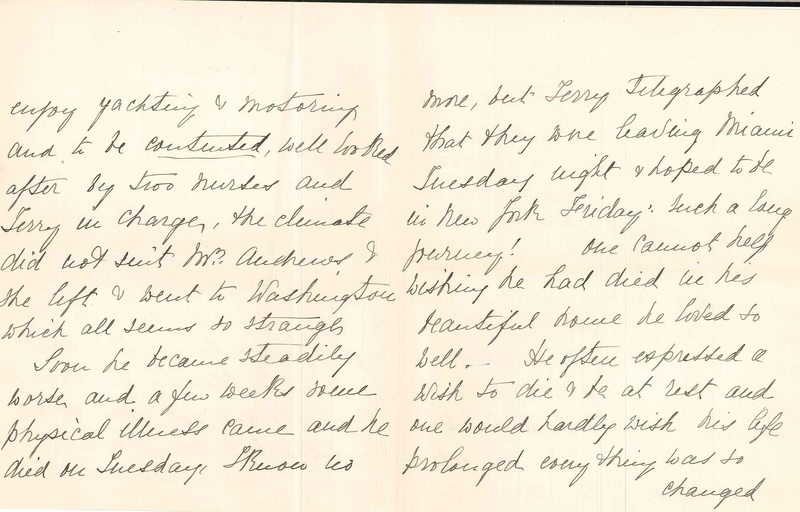 enjoy yachting & motoring
and to be contented, well looked
after by two nurses and
Terry in charge, the climate
did not suit Mrs. Andrews &
she left & went to Washington
which all seems so strange
Soon he became steadily
worse and a few weeks some
physical illness came and he
died on Tuesday, I know no
more, but Terry Telegraphed
that they were leaving Miami
Tuesday night & hoped to be
in New York Friday. Such a long
journey! One cannot help
wishing he had died in his
beautiful home he loved so
well. – He often expressed a
wish to die & be at rest and
one would hardly wish his life
prolonged everything was so
changed